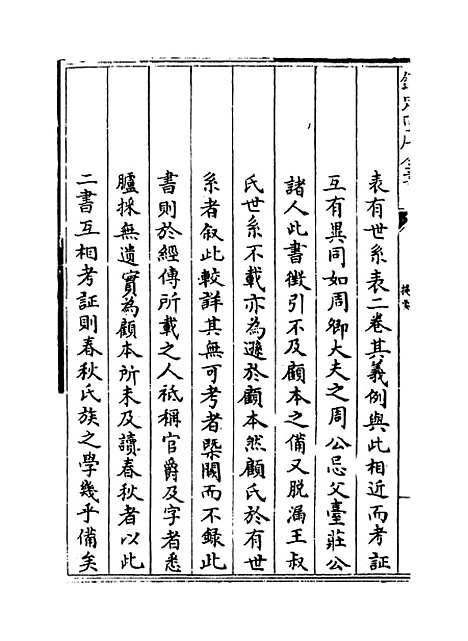 表有世系表二卷其義例與此相近而考証
互有異同如周卿大夫之周公忌父臺莊公
諸人此書徵引不及顧本之備又脱漏王叔
氏世系不載亦為遜於顧本然顧氏於有世
系者叙此較詳其無可考者槩闕而不錄此
書則於經傳所載之人祗稱官爵及字者悉
臚採無遺實為顧本所未及讀春秋者以此
二書互相考証則春秋氏族之學幾乎備矣
提要